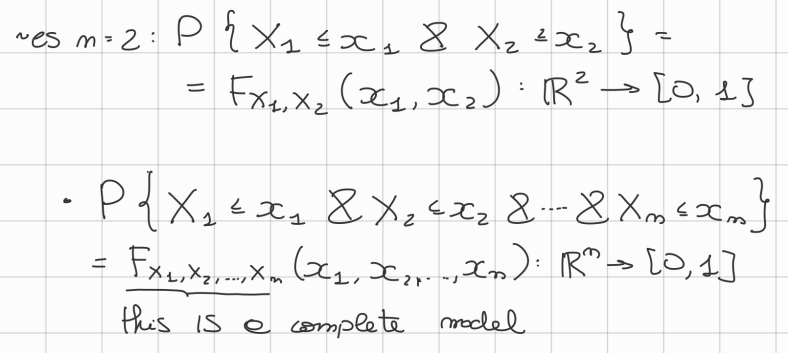 ~es n=2: P { X₁ ≤ x₁ & X₂ ≤ x₂ } =
= F_{X₁,X₂} (x₁, x₂) : ℝ² → [0, 1]
· P { X₁ ≤ x₁ & X₂ ≤ x₂ & ... & Xₙ ≤ xₙ }
= F_{X₁,X₂,...,Xₙ} (x₁, x₂, ..., xₙ) : ℝⁿ → [0, 1]
this is a complete model